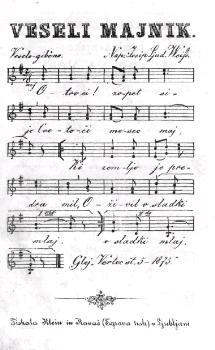 VESELI MAJNIK.
Veselo-gibčno. Nap. Josip Ljud. Weiss.
O - troci! zopet si -
je Cve - to - či me - sec maj,
Ki zem - ljo je pre -
dra mil, O - ži - vil v sladki
mlaj. v sladki mlaj.
Glej „Vertec“ st. 5 - 1875
Tiskala Klein in Kovač (Egerova tisk.) v Ljubljani